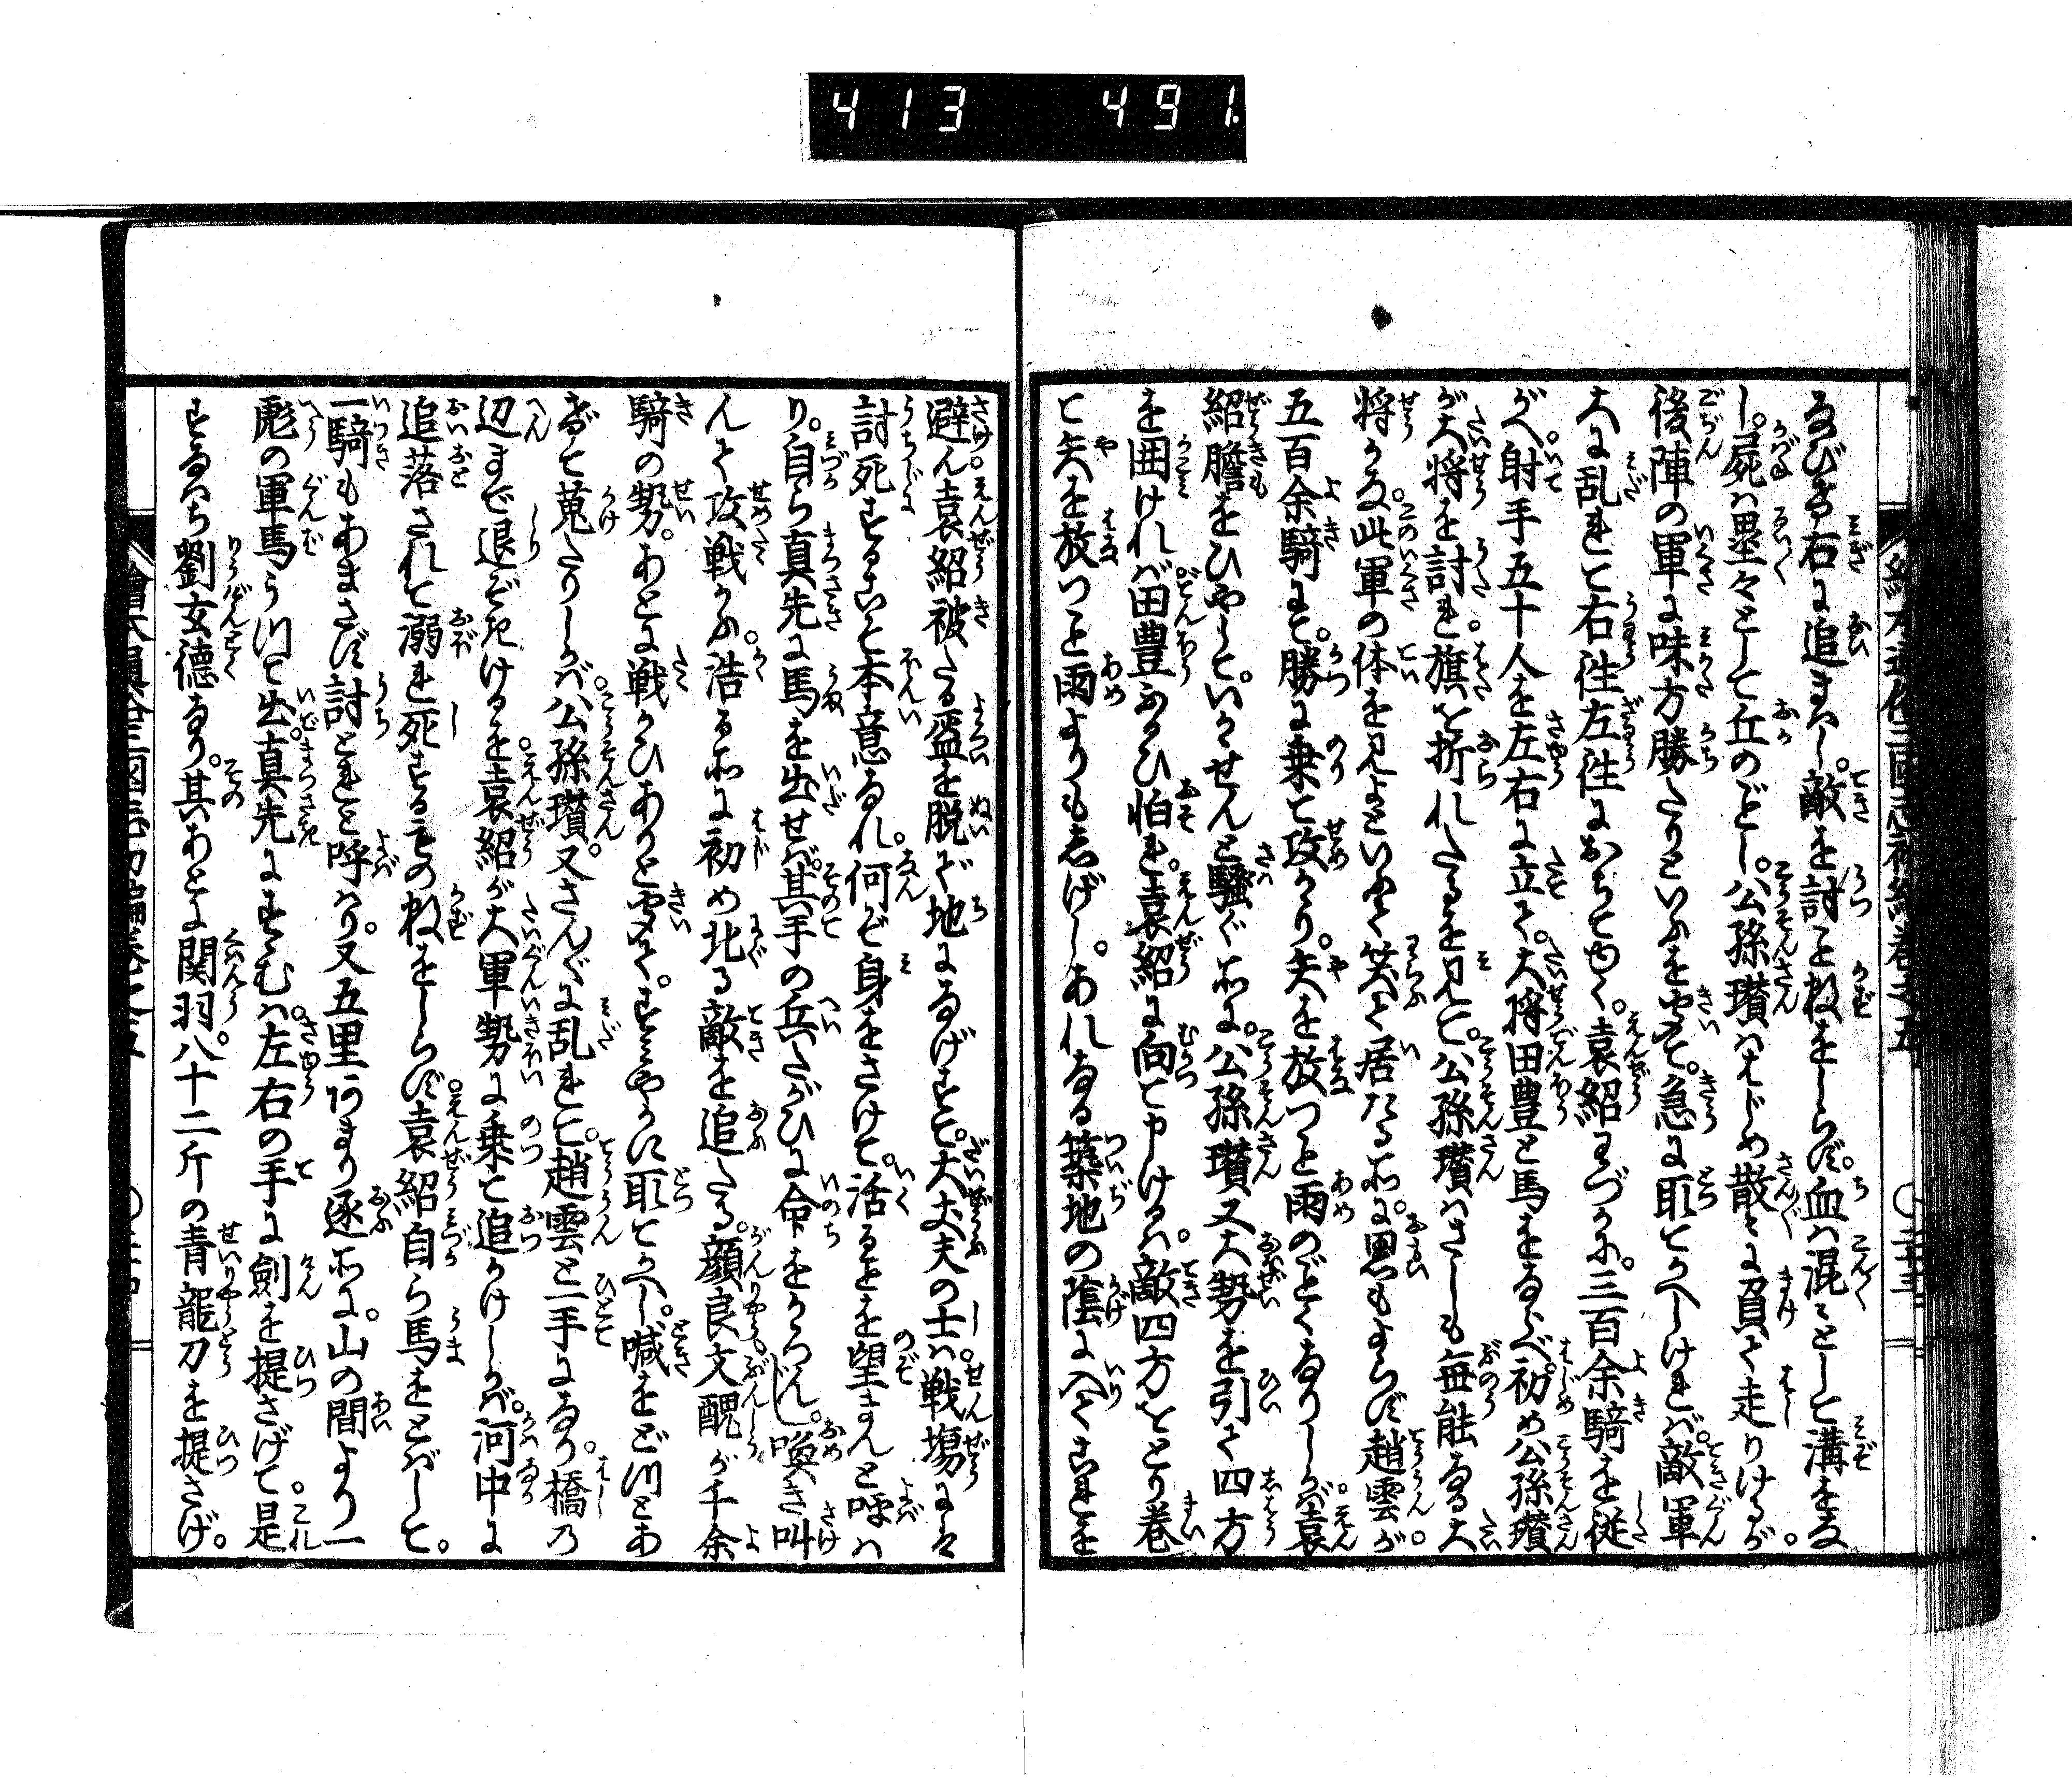 413 491.
なびき右に追まはし。敵を討こと数をしらず。血は混々として溝をな
し。屍は塁々として丘のごとし。公孫瓚はじめ散々に負て走りけるが。
後陣の軍に味方勝たりといふを聞て。急に取てかへしければ。敵軍
大に乱れて右往左往におちてゆく。袁紹わづかに。三百余騎を従
がへ。射手五十人を左右に立て。大将田豊と馬をならべ。初め公孫瓚
が大将を討れ。旗を折れたるを見て。公孫瓚はさしも無能なる大
将かな。此軍の体を見よといふて笑て居たる所に。思もよらず趙雲が。
五百余騎にて。勝に乗て攻かゝり。矢を放つこと雨のごとくなりしが。袁
紹膽をひやして。いかせんと騒ぐ所に。公孫瓚又大勢を引て四方
を囲ければ。田豊ふるひ怕れ。袁紹に向て申けるは。敵四方をとり巻
て矢を放つこと雨よりもしげし。あれなる築地の陰に入てこれを
避ん。袁紹被たる盔を脱ぎ地になげすて。大丈夫の士は。戦場にて
討死することこそ本意なれ。何ぞ身をさけて。活ることを望まんと呼は
り。自ら真先に馬を出せば。其手の兵たがひに命をかろんじ。喚き叫
んで攻戦かふ。浩る所に初め北る敵を追たる。顔良文醜が千余
騎の勢。あとに戦かひありと聞て。すみやかに取てかへし。喊をどつとあ
げて蒐たりしかば。公孫瓚。又さんざんに乱れて。趙雲と一手になり。橋の
辺まで退ぞきけるを。袁紹が大軍勢に乗て追かけしかば。河中に
追落されて溺れ死するもの数をしらず。袁紹自ら馬をとばして。
一騎もあまさず討とれと呼はり。又五里あまり逐所に。山の間より一
彪の軍馬うつて出。真先にすゝむは。左右の手に剣を提さげて。是
すなはち劉玄徳なり。其あとに関羽。八十二斤の青龍刀を提さげ。